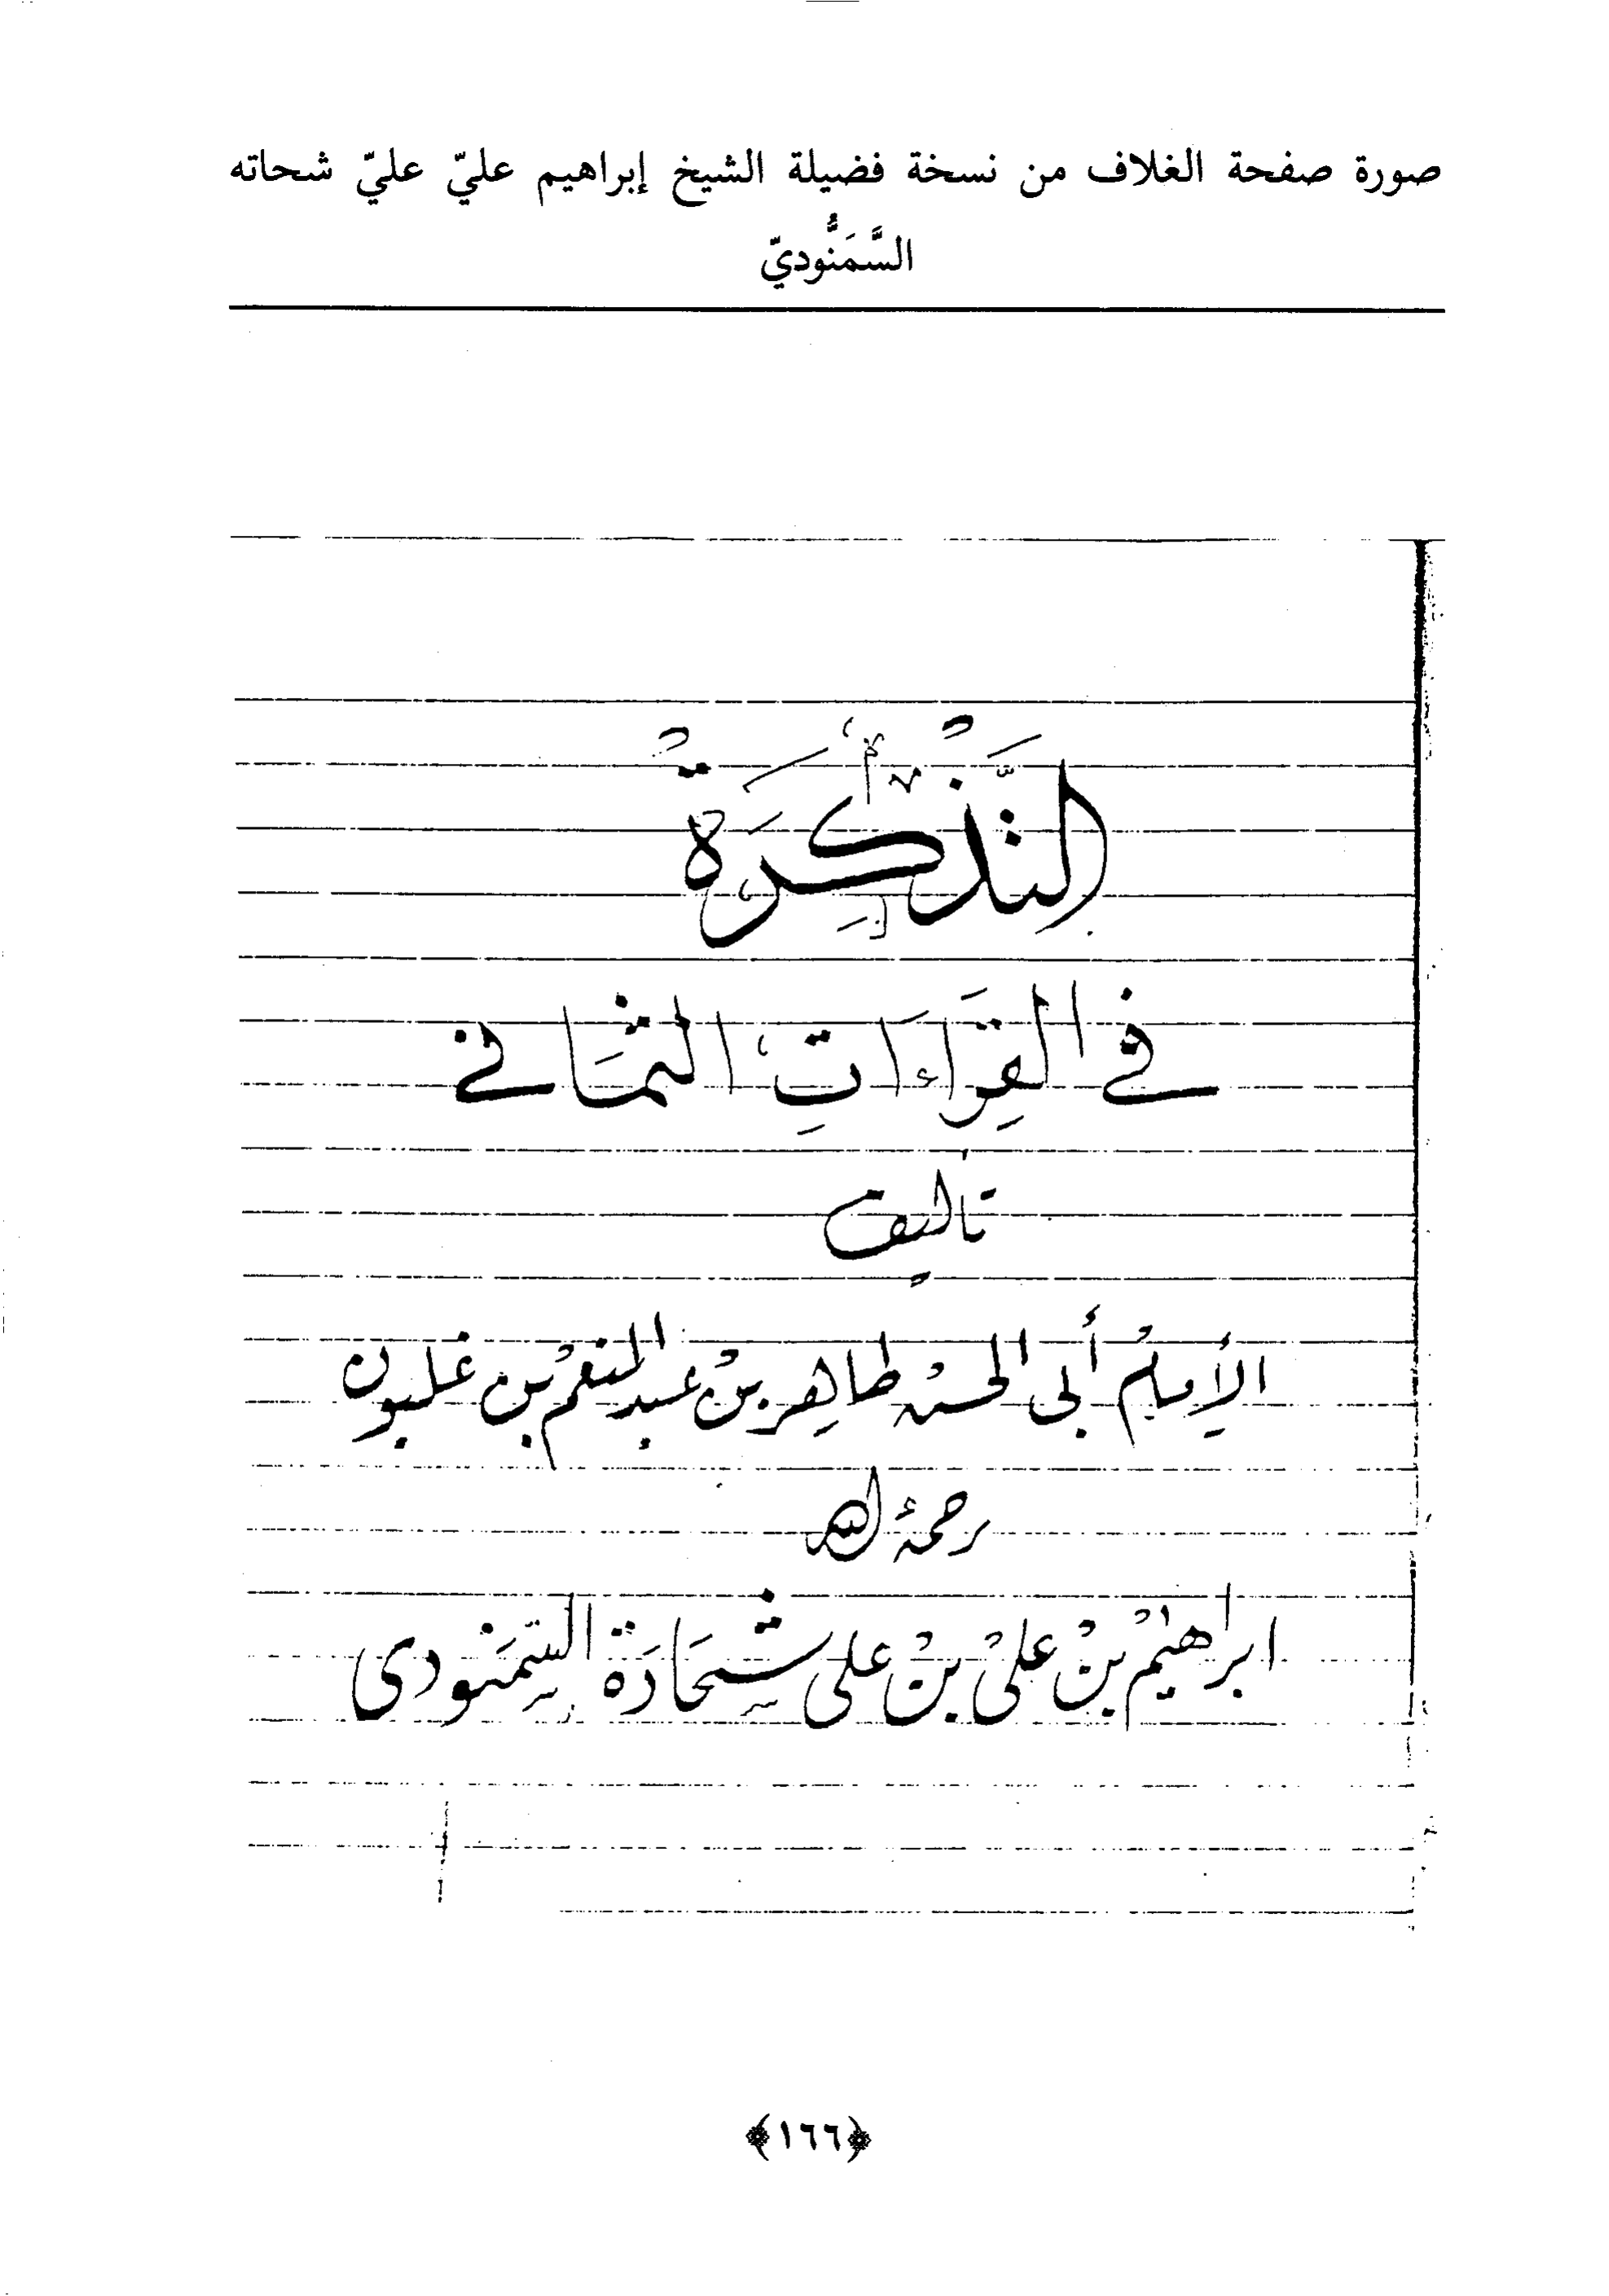 صورة صفحة الغلاف من نسخة فضيلة الشيخ إبراهيم عليّ عليّ شحاته
السَّمَنُّوديّ
التَّذْكِرَةُ
في القِرَاءَاتِ الثمَانى
تاليف
الإِمامُ أبى الحسن طاهِر بنْ عبد المنعمْ بن غلبون
رحمهُ الله
ابراهيمْ بنْ علىْ بنْ على شحَادَة السِّمَنودى
﴿١٦٦﴾